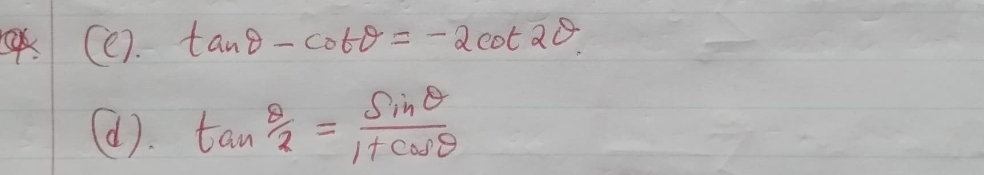 (c). tanθ - cotθ = -2cot2θ.
(d). tan θ/2 = Sinθ/1+cosθ